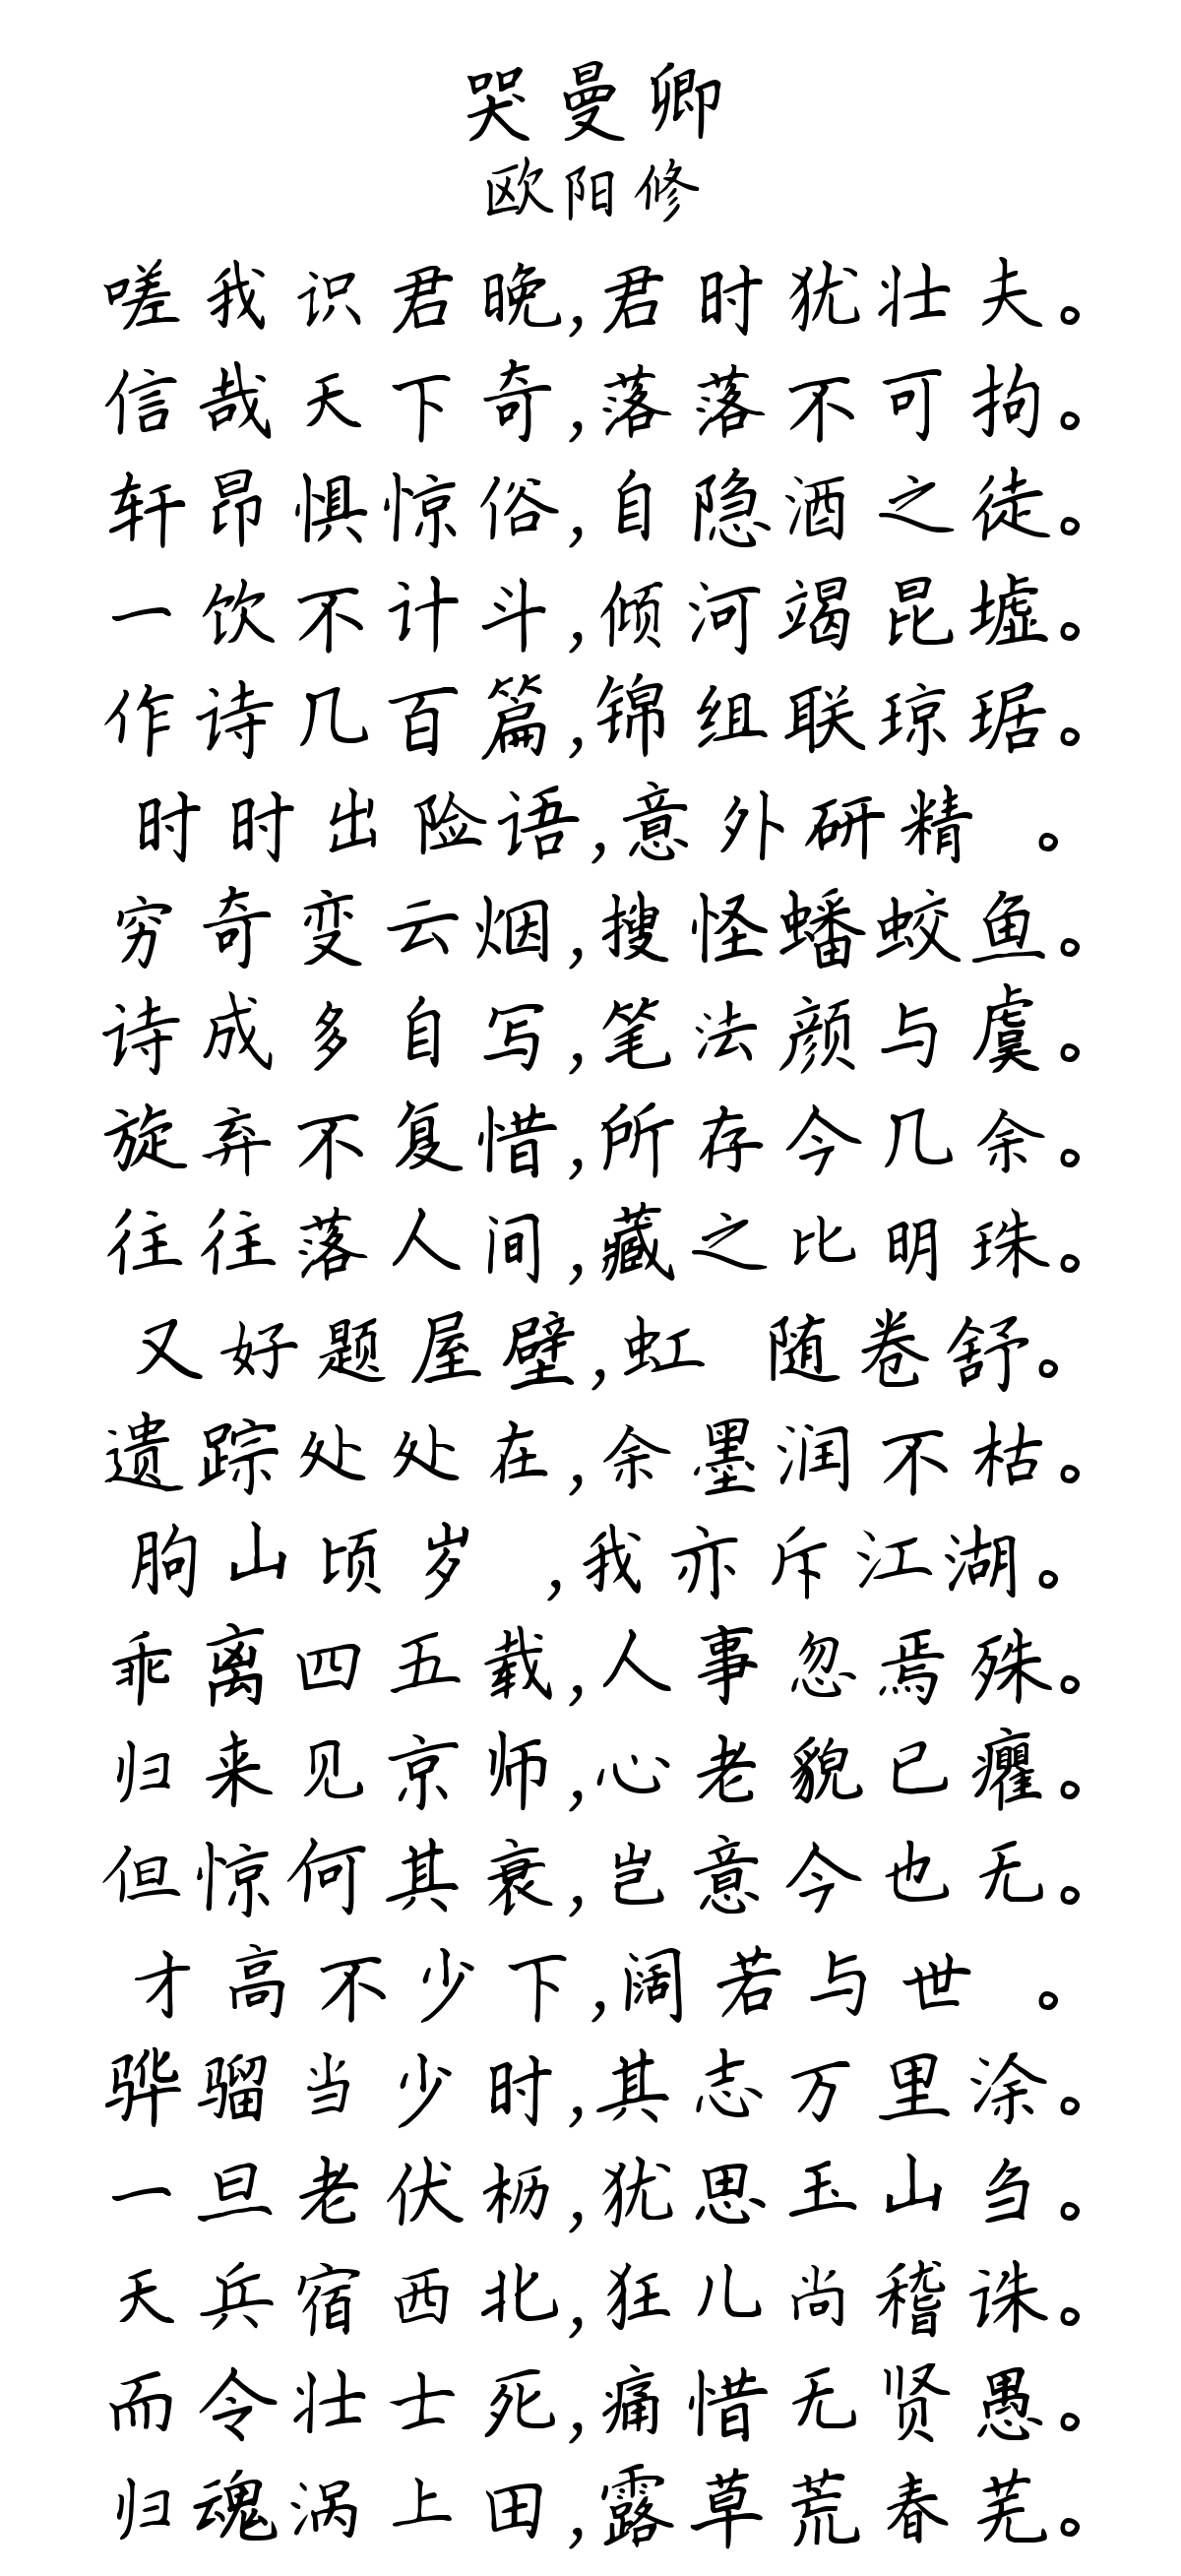 哭曼卿
欧阳修
嗟我识君晚,君时犹壮夫。
信哉天下奇,落落不可拘。
轩昂惧惊俗,自隐酒之徒。
一饮不计斗,倾河竭昆墟。
作诗几百篇,锦组联琼琚。
时时出险语,意外研精 。
穷奇变云烟,搜怪蟠蛟鱼。
诗成多自写,笔法颜与虞。
旋弃不复惜,所存今几余。
往往落人间,藏之比明珠。
又好题屋壁,虹 随卷舒。
遗踪处处在,余墨润不枯。
朐山顷岁 ,我亦斥江湖。
乖离四五载,人事忽焉殊。
归来见京师,心老貌已癯。
但惊何其衰,岂意今也无。
才高不少下,阔若与世 。
骅骝当少时,其志万里涂。
一旦老伏枥,犹思玉山刍。
天兵宿西北,狂儿尚稽诛。
而令壮士死,痛惜无贤愚。
归魂涡上田,露草荒春芜。